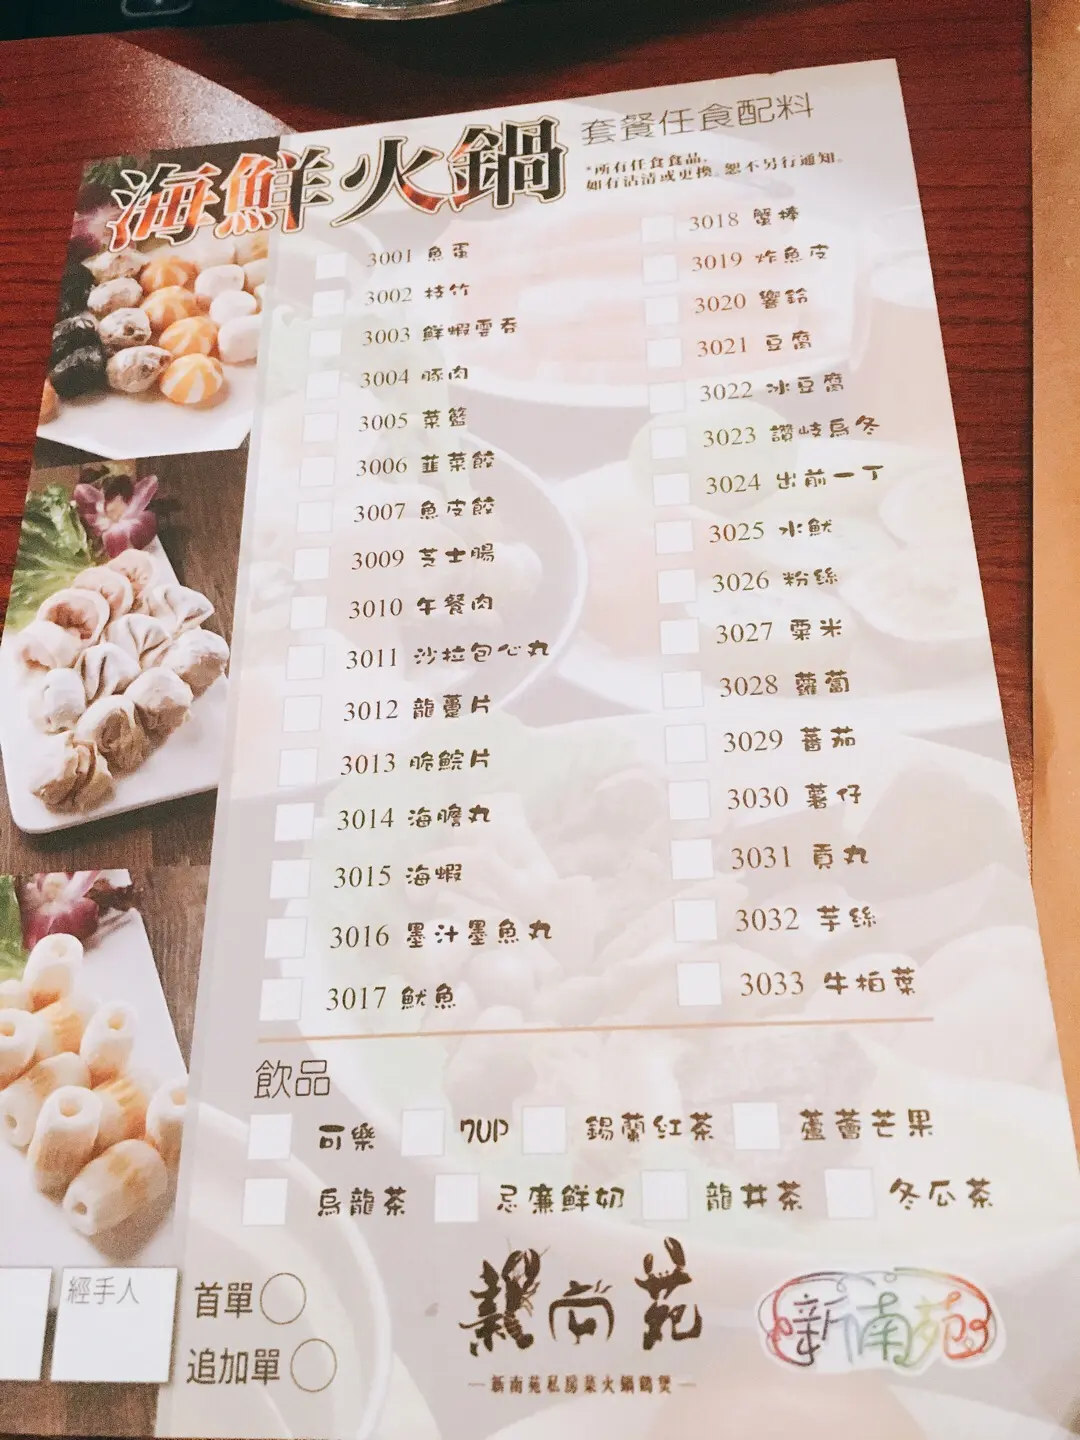 海鮮火鍋
套餐任食配料
*所有任食食品,
如有沽清或更換。恕不另行通知。
3001 魚蛋
3002 枝竹
3003 鮮蝦雲吞
3004 豚肉
3005 菜籃
3006 韮菜餃
3007 魚皮餃
3009 芝士腸
3010 午餐肉
3011 沙拉包心丸
3012 龍躉片
3013 脆鯇片
3014 海膽丸
3015 海蝦
3016 墨汁墨魚丸
3017 魷魚
3018 蟹棒
3019 炸魚皮
3020 響鈴
3021 豆腐
3022 冰豆腐
3023 讚岐烏冬
3024 出前一丁
3025 水魷
3026 粉絲
3027 粟米
3028 蘿蔔
3029 蕃茄
3030 薯仔
3031 貢丸
3032 芋絲
3033 牛柏葉
飲品
可樂 7UP 錫蘭紅茶 蘆薈芒果
烏龍茶 忌廉鮮奶 龍井茶 冬瓜茶
經手人
首單
追加單
新南苑
新南苑私房菜火鍋鶏煲
新南苑